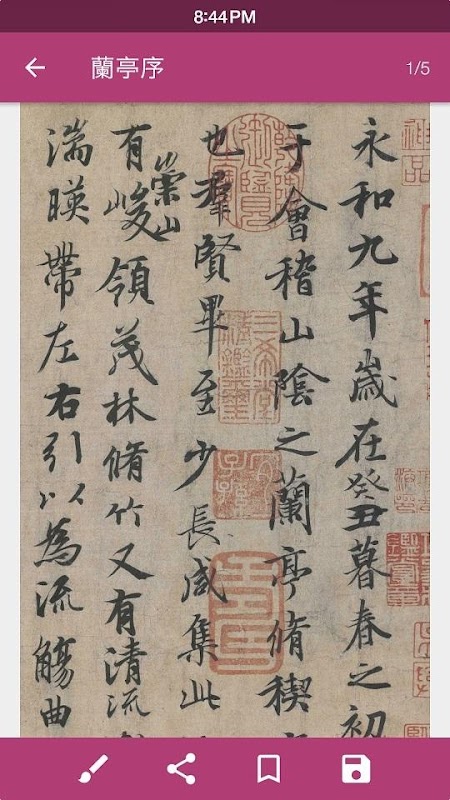 8:44PM
蘭亭序
1/5
永和九年歲在癸丑暮春之初
于會稽山陰之蘭亭脩稧
也羣賢畢至少長咸集此
有崇山峻領茂林脩竹又有清流
湍暎帶左右引以為流觴曲
三希堂精鑑璽
宜子孫